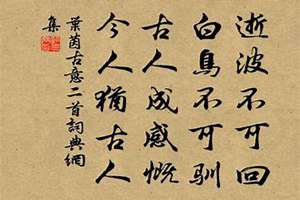 逝波不可回
白鳥不可馴
古人成感慨
今人猶古人
葉茵古意二首詞典網
集